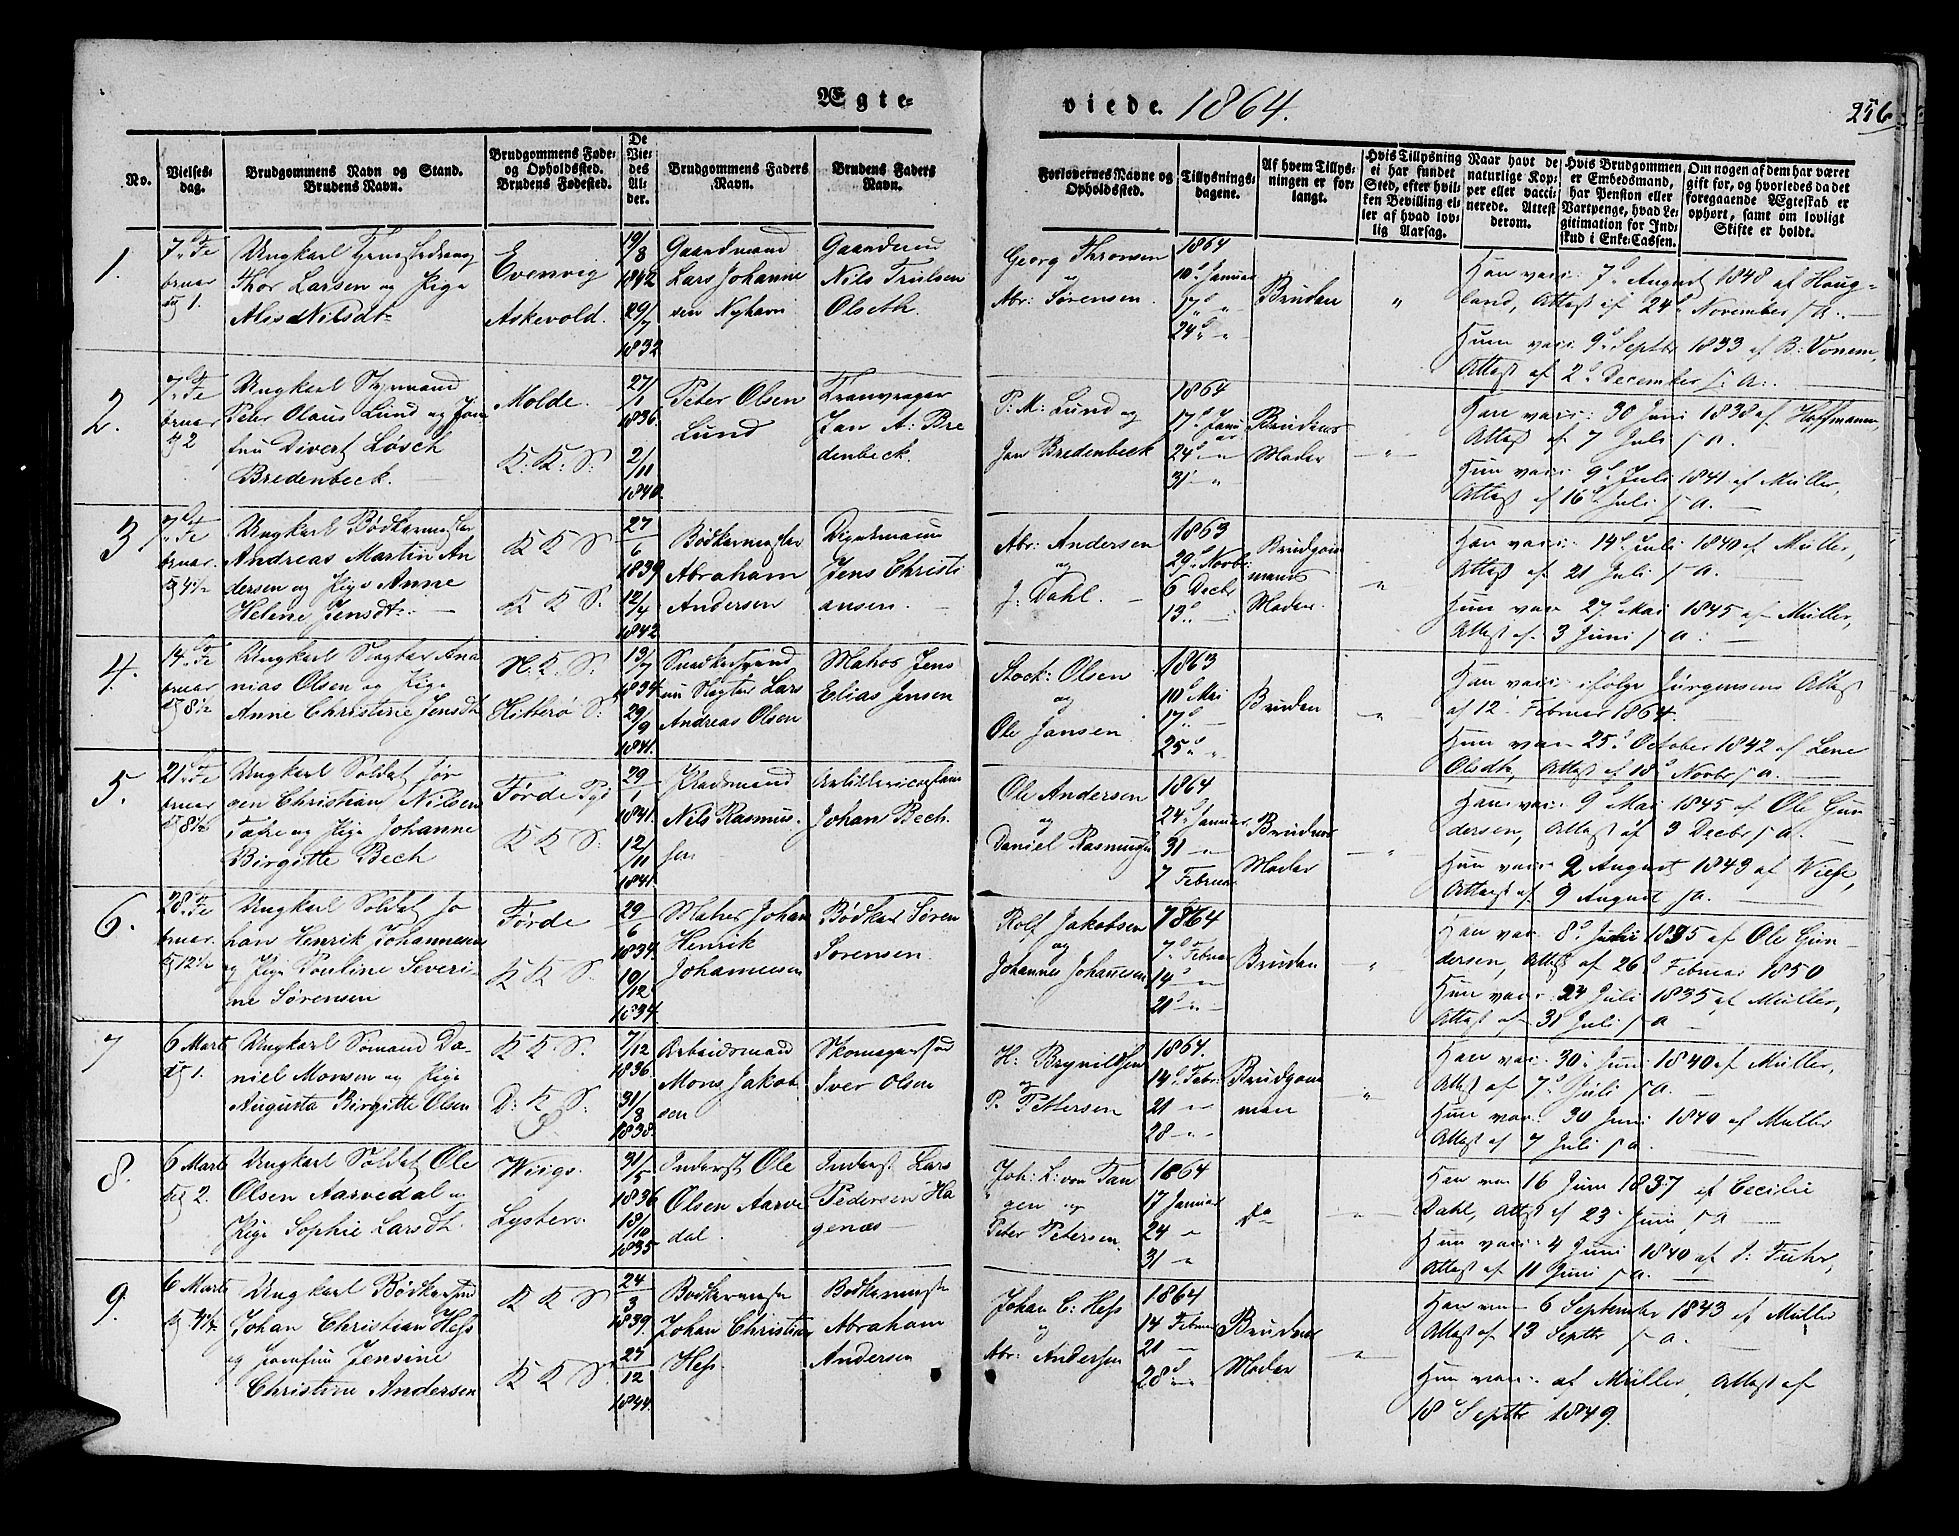 Ægte-
viede 1864.
256
No.
Vielses-
dag.
Brudgommens Navn og Stand.
Brudens Navn.
Brudgommens Føde-
og Opholdssted.
Brudens Fødested.
De
Vie-
des
Al-
der.
Brudgommens Faders
Navn.
Brudens Faders
Navn.
Forlovernes Navne og
Opholdssted.
Tillysnings-
dagene.
Af hvem Tillys-
ningen er for-
langt.
Hvis Tillysning
ei har fundet
Sted, efter hvil-
ken Bevilling el-
ler af hvad lov-
lig Aarsag.
Naar havt de
naturlige Kop-
per eller vacci-
nerede. Attest
derom.
Hvis Brudgommen
er Embedsmand,
har Pension eller
Vartpenge, hvad Le-
gitimation for Ind-
skud i Enke-Cassen.
Om nogen af dem har været
gift før, og hvorledes da det
foregaaende Ægteskab er
ophørt, samt om lovligt
Skifte er holdt.
1.
7de Fe
bruar
1.
Ungkarl
Thor Larsen og Pige
Alis Nilsdt
Evenvig
Askevold.
19/8
1842
29/7
1832
Gaardmand
Lars Johanne
sen Nyhavn
Gaardmand
Nils Trulsen
Olseth.
Georg Thronsen
og
Abr: Sørensen.
1864
10de Januar
17de "
24de "
Bruden
"
Han vacc: 7de August 1848 af Houg-
land, Attest af 24de November s. a.
Hun vacc: 9de Septbr 1833 af B: Vonem,
Attest af 2de December s. a.
2.
7de Fe
bruar
2
Ungkarl Styrmand
Peter Olaus Lund og Jom
fru Divert Løsch
Bredenbeck.
Molde.
K: K: S:
27/1
1836.
2/11
1840.
Peter Olsen
Lund
Tranvrager
Jan A: Bre
denbeck.
P: M: Lund og
Jan Bredenbeck
1864
17de Janu
ar
24de "
31 "
Brudens
Moder
"
Han vacc: 30 Juni 1838 af Hoffmann,
Attest af 7 Juli s. a.
Hun vacc: 9de Juli 1841 af Müller,
Attest af 16de Juli s. a.
3
7de Fe
bruar.
4 1/2
Ungkarl Bødkermester
Andreas Martin An
dersen og Pige Anne
Helene Jensdt.
K K S.
K K S.
27/6
1839
12/4
1842
Bødkermester
Abraham
Andersen
Jens Christi
ansen.
Abr: Andersen
og
J: Dahl.
1863
29de Novbr
6 Decbr
13de "
Brudgom
mens
Moder.
"
Han vacc: 14de Juli 1840 af Müller,
Attest af 21 Juli s. a.
Hun vacc: 27de Mai 1845 af Müller,
Attest af 3 Juni s. a.
4.
14de Fe
bruar
8 1/2
Ungkarl Slagter Ana
nias Olsen og Pige
Anne Christine Jensdt
N: K: S:
Hitterø S:
13/7
1834.
29/9
1841.
Lars
Andreas Olsen
Matros Jens
Elias Jensen
Stock: Olsen
og
Ole Jansen
1863
10de Mai
17de
25de "
Bruden
"
Han vacc: ifølge Jürgensens Attest
af 12 Februar 1864.
Hun vacc 25de October 1842 af Lene
Olsdtr, Attest af 18de Novbr s. a.
5.
21de Fe
bruar
8 1/2
Ungkarl Soldat Jør
gen Christian Nilsen
og Pige Johanne
Birgitte Bech
Førde
K K S:
29/1
1841.
12/11
1841.
Pladsmand
Nils Rasmus.
sen
Johan Bech.
Ole Andersen
og
Daniel Rasmussen
1864
24de Januar
31 "
7 Februar
Brudens
Moder
"
Han vacc: 9de Mai 1845 af Ole Gun
dersen, Attest af 3 Decbr s. a.
Hun vacc: 2 August 1843 af Wiese,
Attest af 9 August s. a.
6.
28de Fe
bruar.
12 1/2
Ungkarl Soldat Jo
han Henrik Johannesen
og Pige Pouline Severi
ne Sørensen
Førde
K K S.
29/6
1834.
19/12
1834.
Johan
Henrik
Johannesen
Bødker Søren
Sørensen.
Rolf Jakobsen
og
Johannes Johannesen
1864
7de Februar
14de "
21de "
Bruden
"
Han vacc: 8de Juli 1835 af Ole Gun-
dersen, Attest af 26de Februar 1850
Hun vacc: 24 Juli 1835 af Müller,
Attest af 31 Juli s. a.
7
6 Marts
1.
Ungkarl Sømand Da-
niel Monsen og Pige
Augusta Birgitte Olsen
K K S.
D: K S:
7/12
1836
31/8
1838.
Arbeidsmand
Mons Jakob
sen
Iver Olsen
H: Brynildsen
og
P. Pettersen
1864.
14de Febr:
21 "
28 "
Brudgom
men
"
Han vacc: 30te Juni 1840 af Müller,
Attest af 7de Juli s. a.
Hun vacc: 30 Juni 1840 af Müller
Attest af 7 Juli s. a.
8.
6 Marts
2.
Ungkarl Soldat Ole
Olsen Aarvedal og
Pige Sophie Larsdt.
Wiigs.
Lyster.
31/5
1836
19/10
1835
Inderst Ole
Olsen Aarve
dal.
Inderst Lars
Pedersen Ha
genæs
Joh: L: von Tan
gen og
Peter Petersen.
1864
17 Januar
24 "
31 "
Do
"
Han vacc 16 Juni 1837 af Cecilie
Dahl, Attest af 23 Juni s. a
Hun vacc: 4 Juni 1840 af J: Fuhr,
Attest af 11 Juni s. a.
9.
6 Marts
4 1/4.
Ungkarl Bødkersvend
Johan Christian Hess
og Jomfru Jensine
Christine Andersen
K K S
K K S.
24/3
1839.
27/12
1844.
Bødkermester
Johan Christian
Hess.
Bødkermester
Abraham
Andersen
Johan C: Hess
"
Abr: Andersen
1864
14 Februar
21 "
28de "
Brudens
Moder
"
Han vacc 6 September 1843 af Müller
Attest af 13 Septbr s. a.
Hun vacc: af Müller, Attest af
18de Septbr 1849.